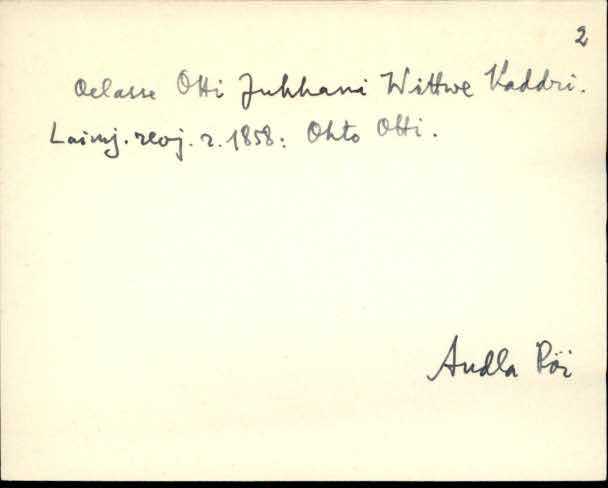 2
Oelasse Otti Juhhani Wittwe Kaddri.
Laimj. revj. r. 1858: Ohto Otti.
Audla Pöi